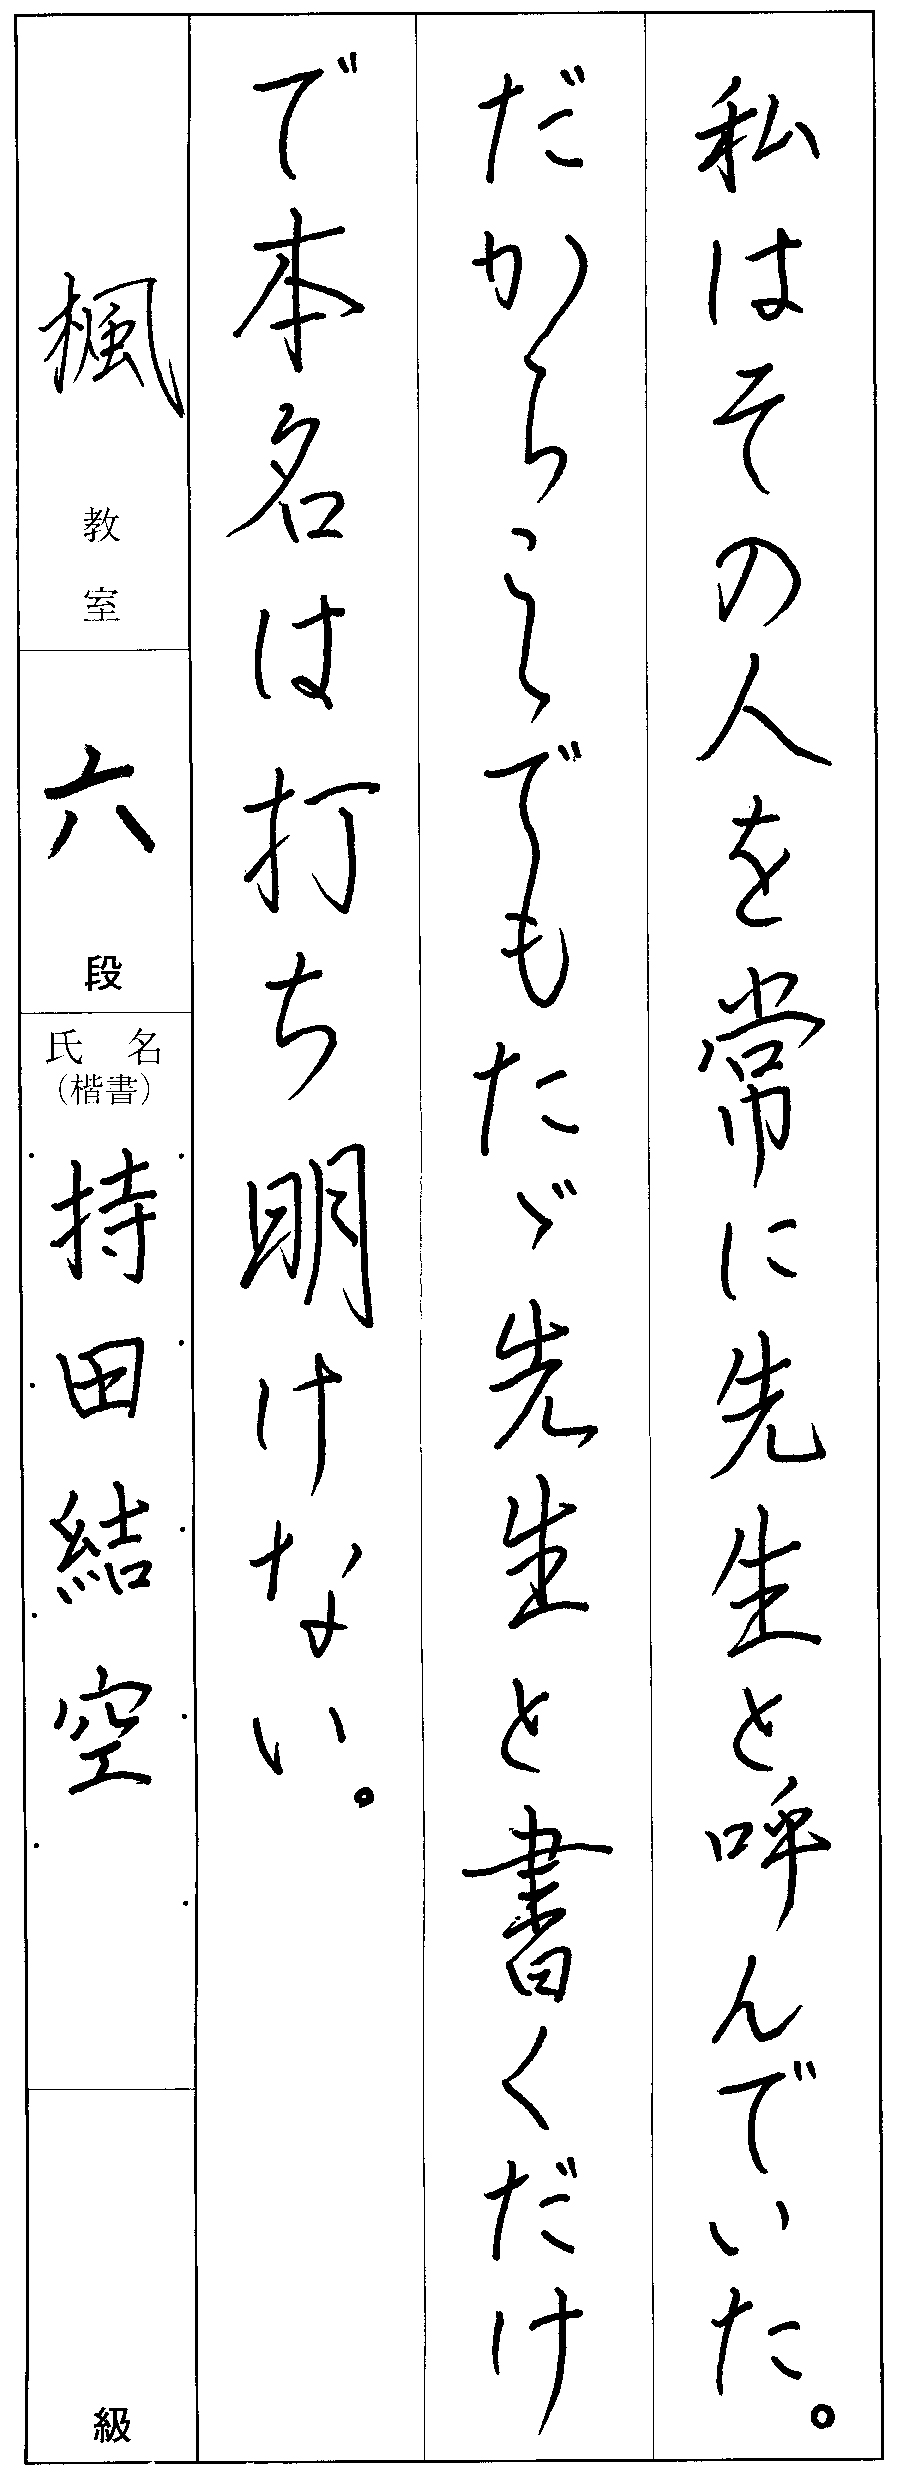 私はその人を常に先生と呼んでいた。
だからここでもたゞ先生と書くだけ
で本名は打ち明けない。
楓教室
六段
氏名
(楷書)
持田結空
級